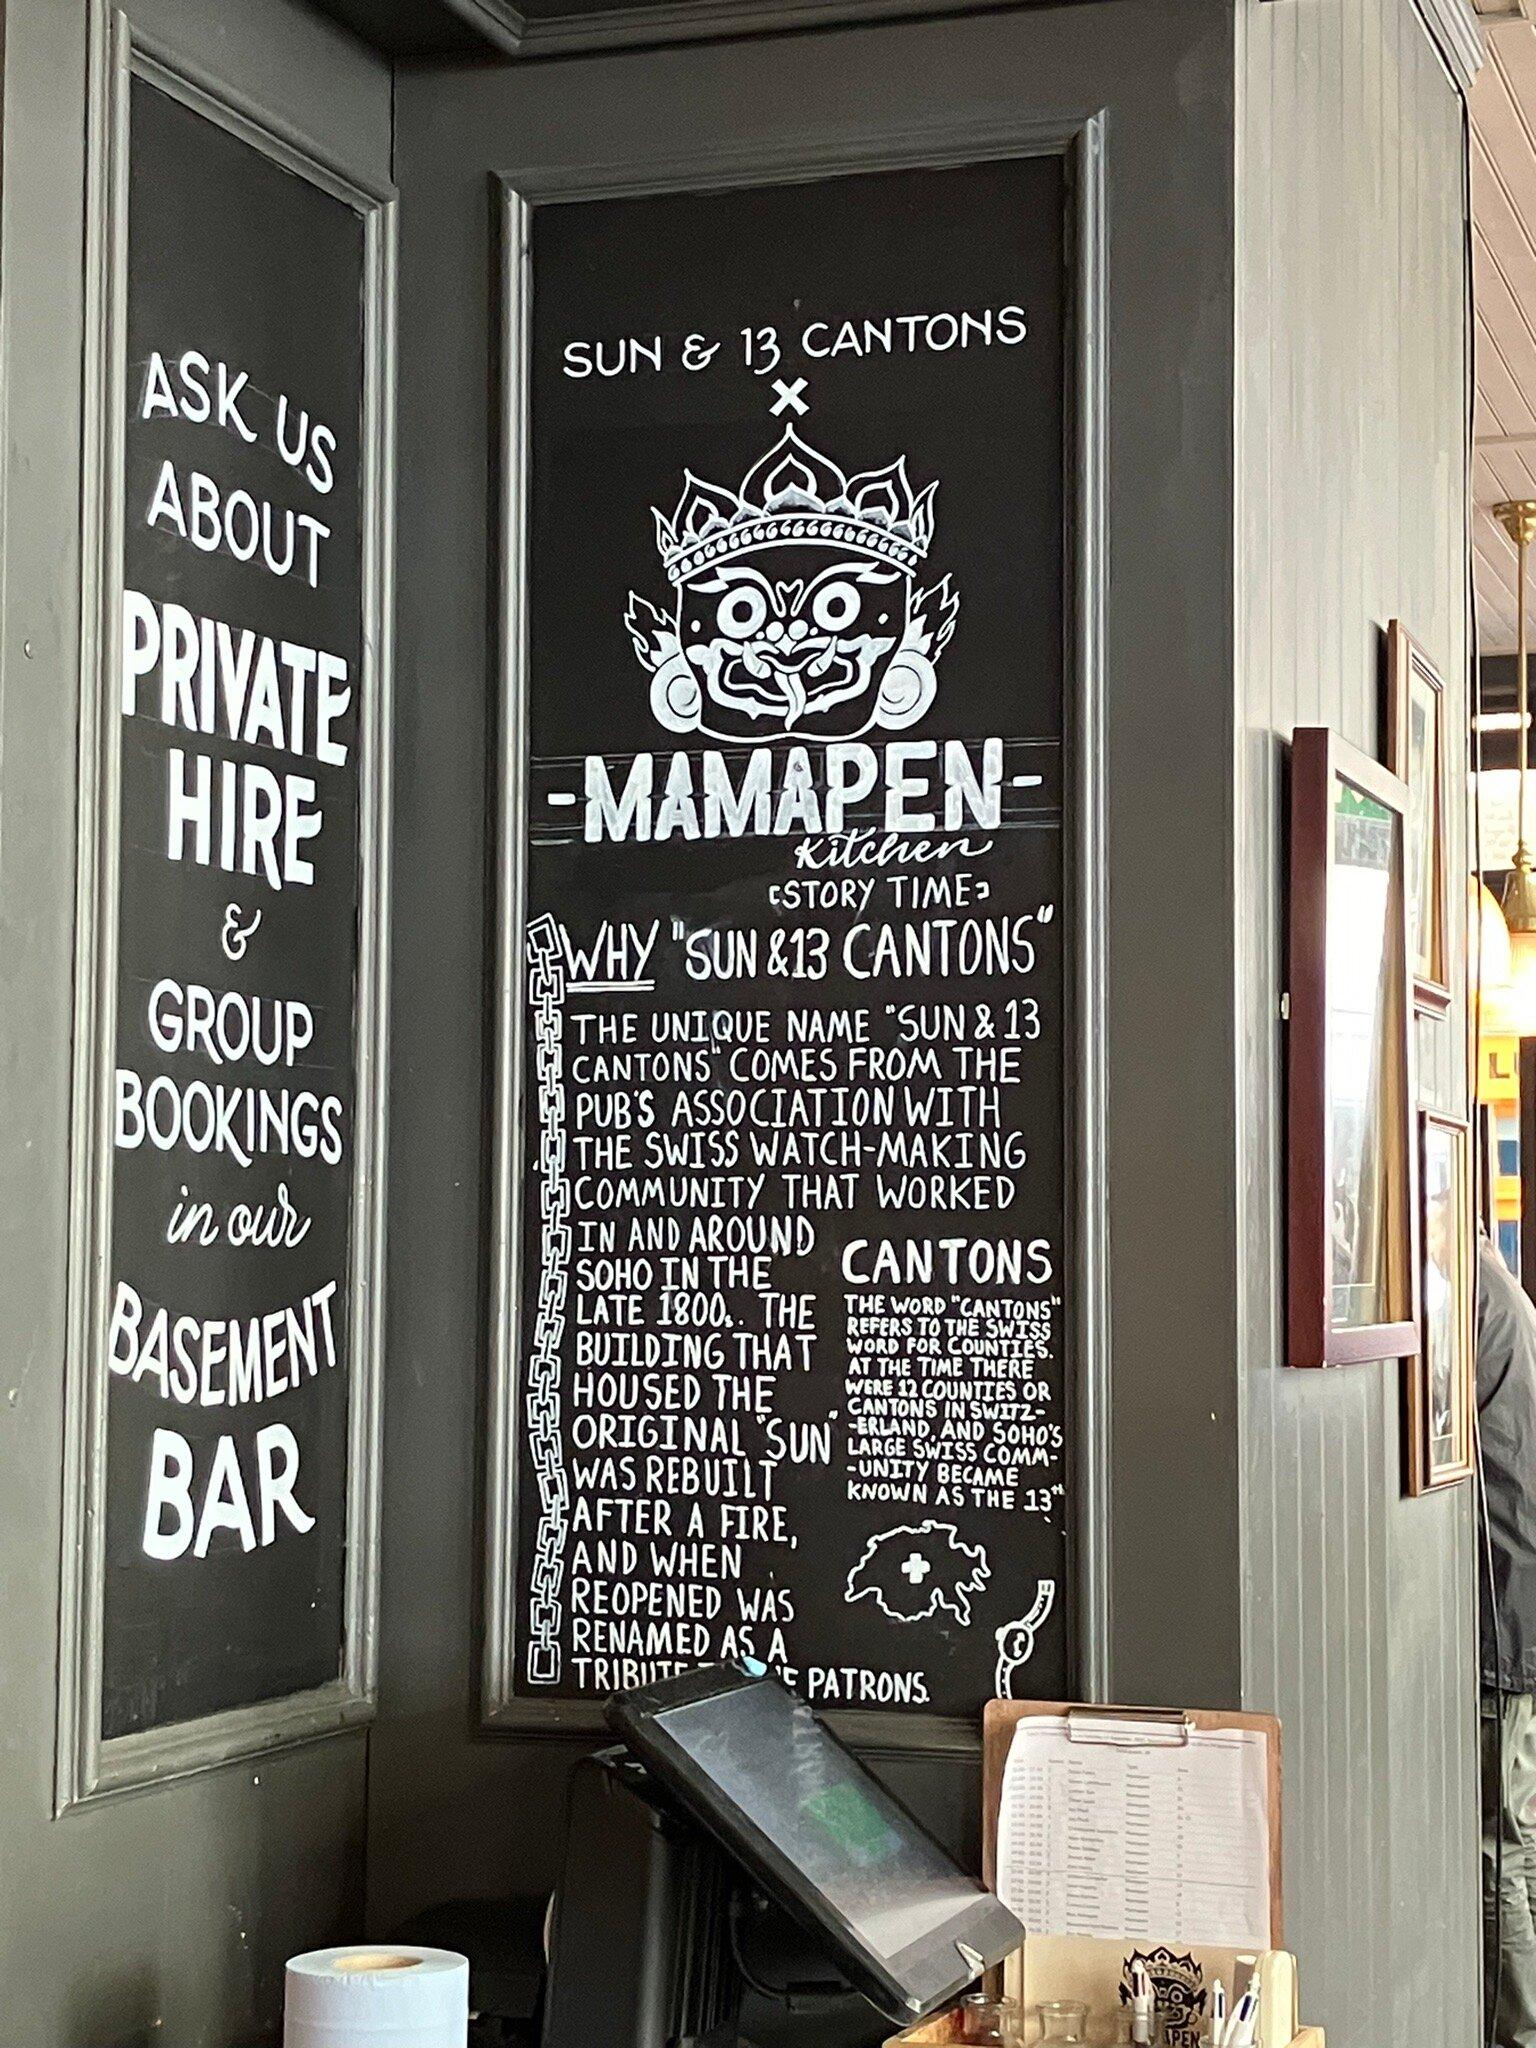 ASK US
ABOUT
PRIVATE
HIRE
&
GROUP
BOOKINGS
in our
BASEMENT
BAR
SUN & 13 CANTONS
X
-MAMAPEN-
Kitchen
[STORY TIME]
WHY "SUN & 13 CANTONS"
THE UNIQUE NAME "SUN & 13
CANTONS" COMES FROM THE
PUB'S ASSOCIATION WITH
THE SWISS WATCH-MAKING
COMMUNITY THAT WORKED
IN AND AROUND
SOHO IN THE
LATE 1800s. THE
BUILDING THAT
HOUSED THE
ORIGINAL "SUN"
WAS REBUILT
AFTER A FIRE,
AND WHEN
REOPENED WAS
RENAMED AS A
TRIBUTE PATRONS.
CANTONS
THE WORD "CANTONS"
REFERS TO THE SWISS
WORD FOR COUNTIES.
AT THE TIME THERE
WERE 12 COUNTIES OR
CANTONS IN SWITZ-
-ERLAND, AND SOHO'S
LARGE SWISS COMM-
-UNITY BECAME
KNOWN AS THE 13th